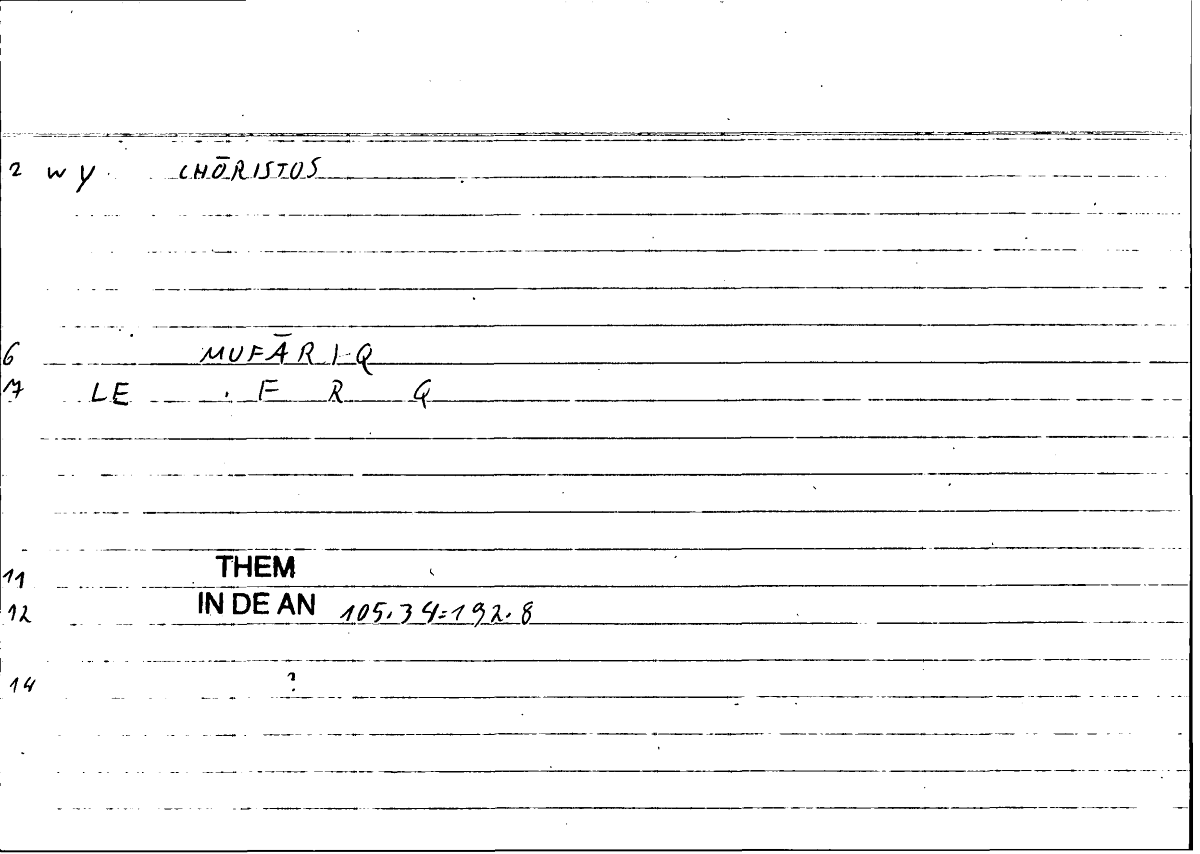 2 w y CHŌRISTOS
6 MUFĀRIQ
7 LE F R Q
11 THEM
12 IN DE AN 105.34=192.8
14 ?